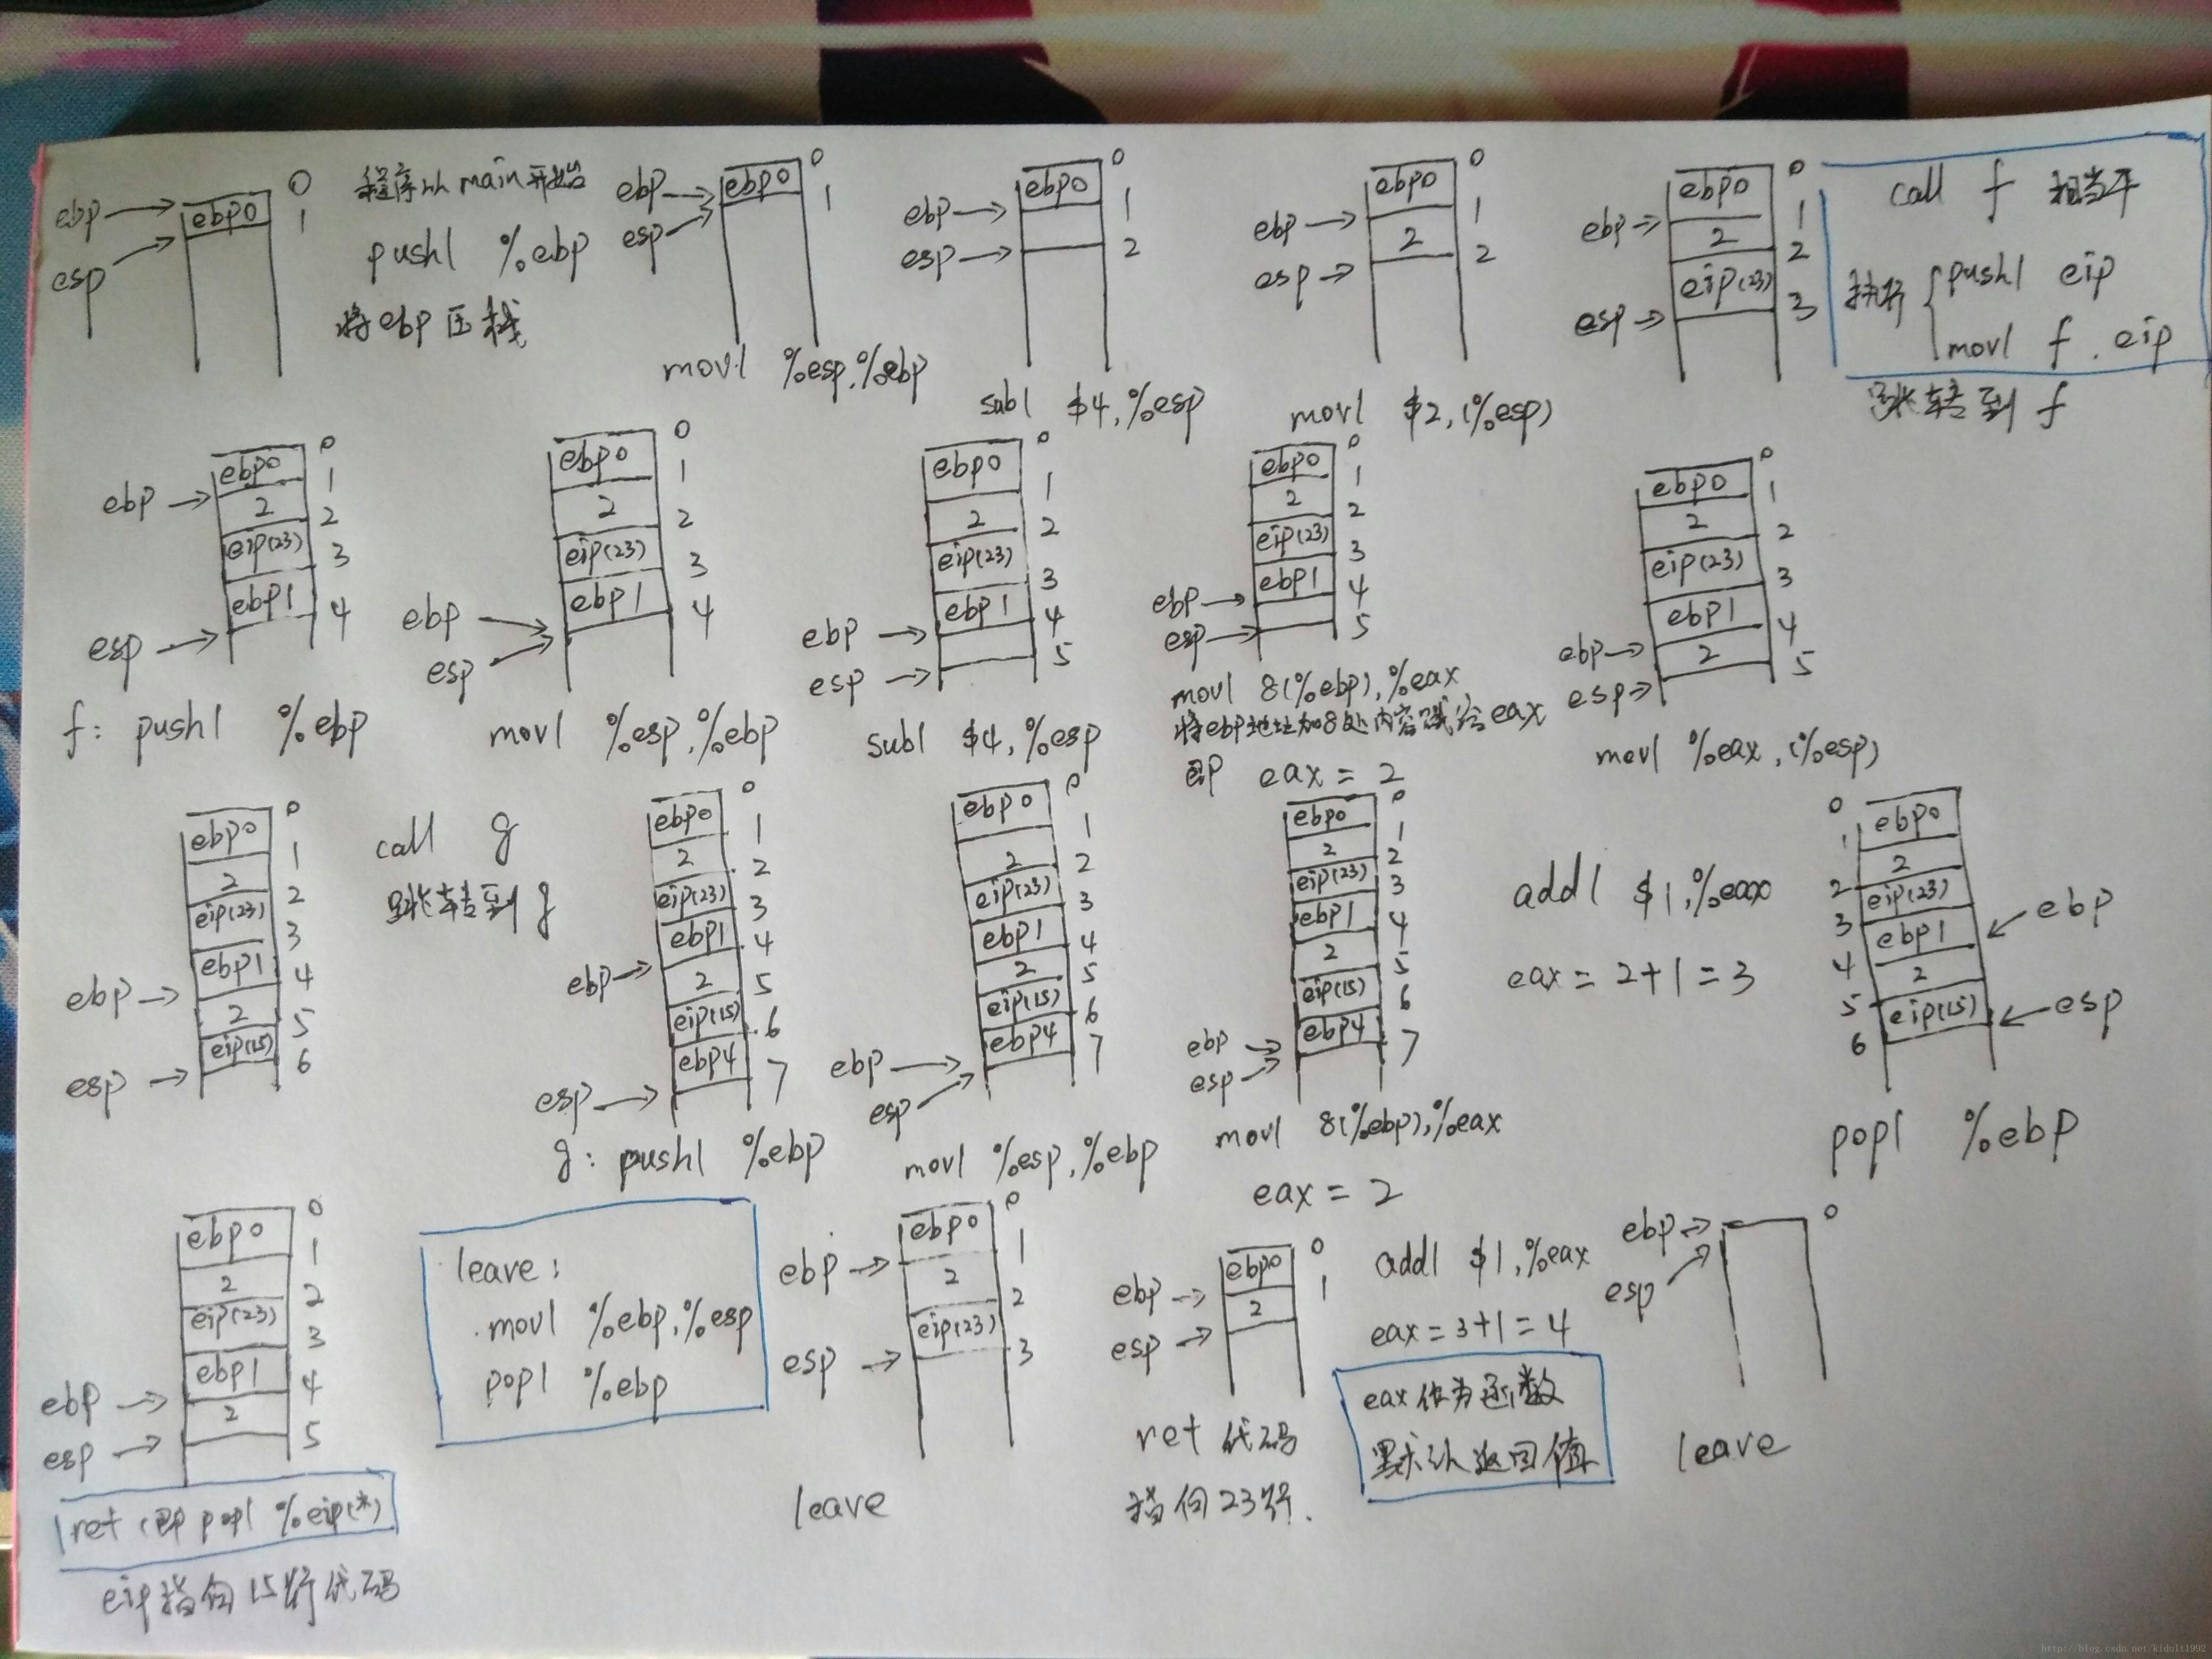 ebp
esp
ebp0
0
1
程序从main开始
pushl %ebp
将ebp压栈
ebp
esp
ebp0
0
1
movl %esp,%ebp
ebp
esp
ebp0
0
1
2
subl $4,%esp
ebp
esp
ebp0
2
0
1
2
movl $2,(%esp)
ebp
esp
ebp0
2
eip(23)
0
1
2
3
call f 相当于
执行
pushl eip
movl f . eip
跳转到 f
ebp
esp
ebp0
2
eip(23)
ebp1
0
1
2
3
4
f: pushl %ebp
ebp
esp
ebp0
2
eip(23)
ebp1
0
1
2
3
4
movl %esp,%ebp
ebp
esp
ebp0
2
eip(23)
ebp1
0
1
2
3
4
5
subl $4,%esp
ebp
esp
ebp0
2
eip(23)
ebp1
0
1
2
3
4
5
movl 8(%ebp),%eax
将ebp地址加8处内容赋给eax
即 eax = 2
ebp
esp
ebp0
2
eip(23)
ebp1
2
0
1
2
3
4
5
movl %eax,(%esp)
ebp
esp
ebp0
2
eip(23)
ebp1
2
eip(15)
0
1
2
3
4
5
6
call g
跳转到 g
ebp
esp
ebp0
2
eip(23)
ebp1
2
eip(15)
ebp4
0
1
2
3
4
5
6
7
g: pushl %ebp
ebp
esp
ebp0
2
eip(23)
ebp1
2
eip(15)
ebp4
0
1
2
3
4
5
6
7
movl %esp,%ebp
ebp
esp
ebp0
2
eip(23)
ebp1
2
eip(15)
ebp4
0
1
2
3
4
5
6
7
movl 8(%ebp),%eax
eax = 2
addl $1,%eax
eax = 2+1 = 3
0
1
2
3
4
5
6
ebp0
2
eip(23)
ebp1
2
eip(15)
ebp
esp
popl %ebp
ebp
esp
ebp0
2
eip(23)
ebp1
2
0
1
2
3
4
5
ret (即 popl %eip(*)
eip指向15行代码
leave:
movl %ebp,%esp
popl %ebp
ebp
esp
ebp0
2
eip(23)
0
1
2
3
leave
ebp
esp
ebp0
2
0
1
ret 代码
指向23行.
addl $1,%eax
eax = 3+1 = 4
eax作为函数
默认返回值
ebp
esp
0
leave
http://blog.csdn.net/kidult1992